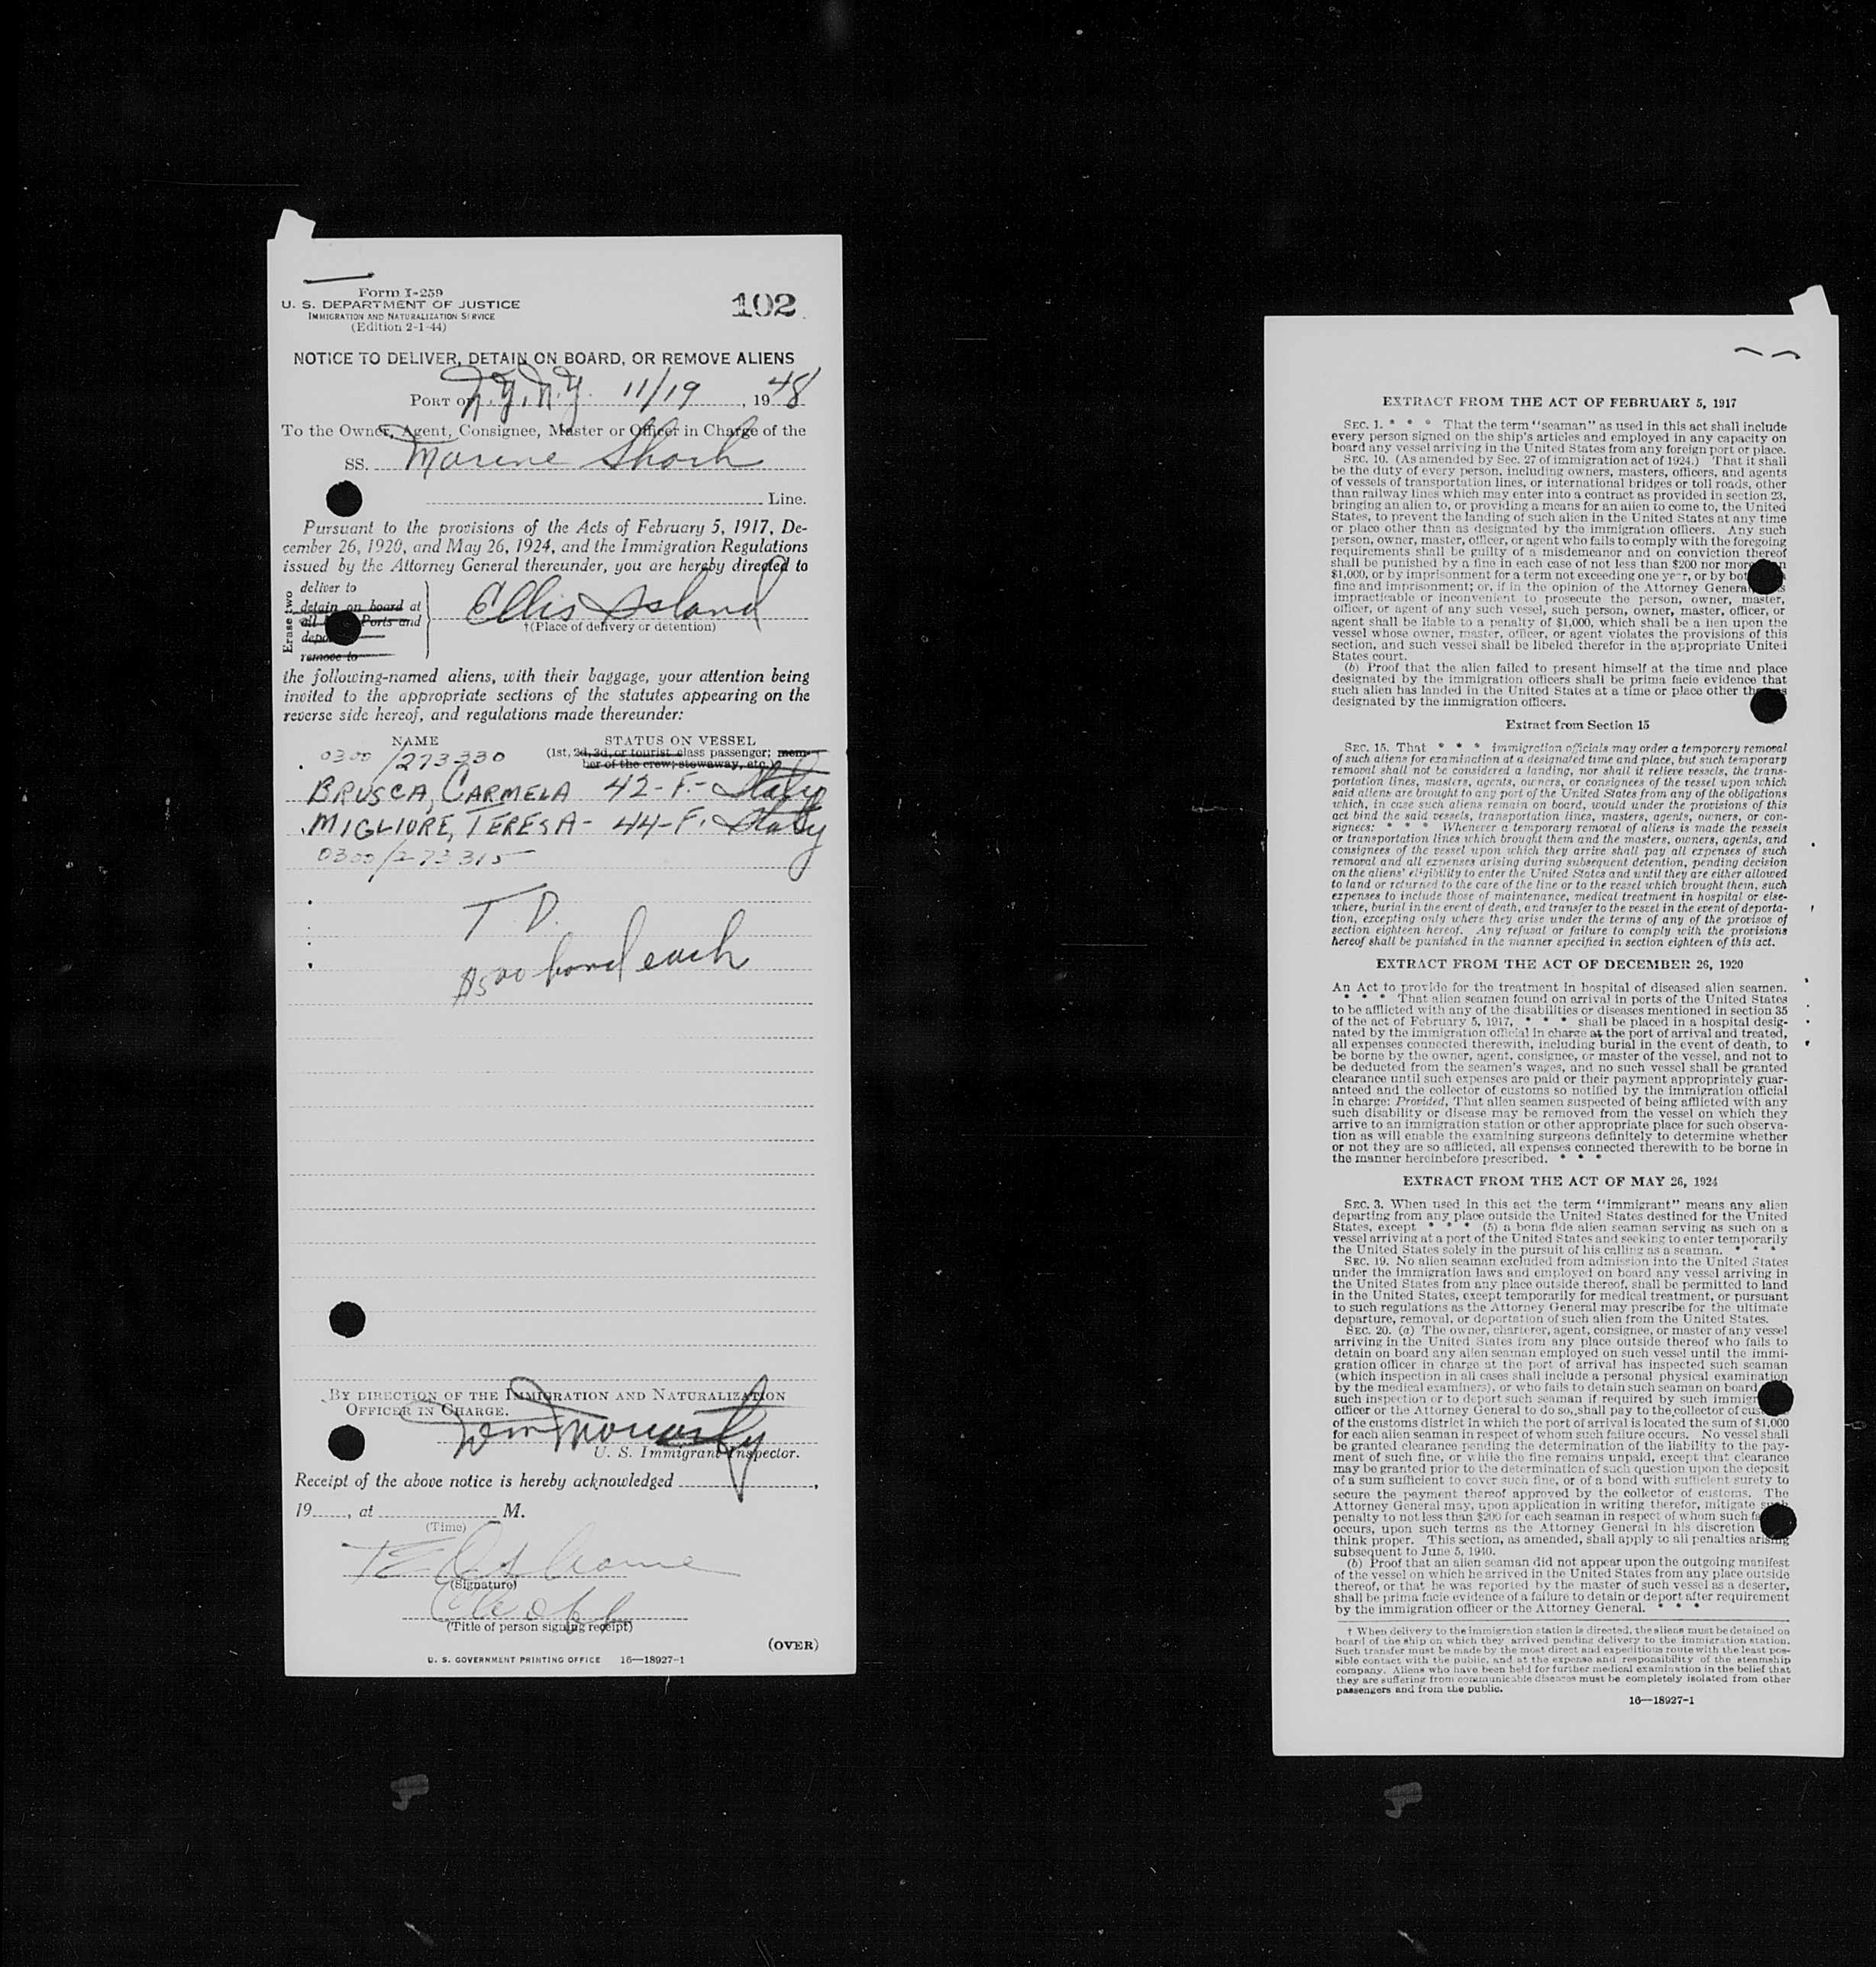 Form I-259
U. S. DEPARTMENT OF JUSTICE
IMMIGRATION AND NATURALIZATION SERVICE
(Edition 2-1-44)
102
NOTICE TO DELIVER, DETAIN ON BOARD, OR REMOVE ALIENS
PORT OF N.Y., N.Y. 11/19, 1948
To the Owner, Agent, Consignee, Master or Officer in Charge of the
SS. Marine Shark
Line.
Pursuant to the provisions of the Acts of February 5, 1917, De-
cember 26, 1920, and May 26, 1924, and the Immigration Regulations
issued by the Attorney General thereunder, you are hereby directed to
Erase two
deliver to
detain on board at
all Ports and
remove to
Ellis Island
†(Place of delivery or detention)
the following-named aliens, with their baggage, your attention being
invited to the appropriate sections of the statutes appearing on the
reverse side hereof, and regulations made thereunder:
NAME STATUS ON VESSEL
(1st, 2d, 3d, or tourist class passenger; mem-
ber of the crew; stowaway, etc.)
0300/273330
BRUSCA, CARMELA 42-F.- Italy
MIGLIORE, TERESA- 44-F. Italy
0300/273315
T.D.
$500 bond each
BY DIRECTION OF THE IMMIGRATION AND NATURALIZATION
OFFICER IN CHARGE.
U. S. Immigrant Inspector.
Receipt of the above notice is hereby acknowledged ,
19 , at M.
(Time)
T E Osborne
(Signature)
(Title of person signing receipt)
(OVER)
U. S. GOVERNMENT PRINTING OFFICE 16—18927-1
EXTRACT FROM THE ACT OF FEBRUARY 5, 1917
SEC. 1. * * * That the term "seaman" as used in this act shall include
every person signed on the ship's articles and employed in any capacity on
board any vessel arriving in the United States from any foreign port or place.
SEC. 10. (As amended by Sec. 27 of immigration act of 1924.) That it shall
be the duty of every person, including owners, masters, officers, and agents
of vessels of transportation lines, or international bridges or toll roads, other
than railway lines which may enter into a contract as provided in section 23,
bringing an alien to, or providing a means for an alien to come to, the United
States, to prevent the landing of such alien in the United States at any time
or place other than as designated by the immigration officers. Any such
person, owner, master, officer, or agent who fails to comply with the foregoing
requirements shall be guilty of a misdemeanor and on conviction thereof
shall be punished by a fine in each case of not less than $200 nor more
$1,000, or by imprisonment for a term not exceeding one year, or by
fine and imprisonment; or, if in the opinion of the Attorney General
impracticable or inconvenient to prosecute the person, owner, master,
officer, or agent of any such vessel, such person, owner, master, officer, or
agent shall be liable to a penalty of $1,000, which shall be a lien upon the
vessel whose owner, master, officer, or agent violates the provisions of this
section, and such vessel shall be libeled therefor in the appropriate United
States court.
(b) Proof that the alien failed to present himself at the time and place
designated by the immigration officers shall be prima facie evidence that
such alien has landed in the United States at a time or place other
designated by the immigration officers.
Extract from Section 15
SEC. 15. That * * * immigration officials may order a temporary removal
of such aliens for examination at a designated time and place, but such temporary
removal shall not be considered a landing, nor shall it relieve vessels, the trans-
portation lines, masters, agents, owners, or consignees of the vessel upon which
said aliens are brought to any port of the United States from any of the obligations
which, in case such aliens remain on board, would under the provisions of this
act bind the said vessels, transportation lines, masters, agents, owners, or con-
signees: * * * Whenever a temporary removal of aliens is made the vessels
or transportation lines which brought them and the masters, owners, agents, and
consignees of the vessel upon which they arrive shall pay all expenses of such
removal and all expenses arising during subsequent detention, pending decision
on the aliens' eligibility to enter the United States and until they are either allowed
to land or returned to the care of the line or to the vessel which brought them, such
expenses to include those of maintenance, medical treatment in hospital or else-
where, burial in the event of death, and transfer to the vessel in the event of deporta-
tion, excepting only where they arise under the terms of any of the provisos of
section eighteen hereof. Any refusal or failure to comply with the provisions
hereof shall be punished in the manner specified in section eighteen of this act.
EXTRACT FROM THE ACT OF DECEMBER 26, 1920
An Act to provide for the treatment in hospital of diseased alien seamen.
* * * That alien seamen found on arrival in ports of the United States
to be afflicted with any of the disabilities or diseases mentioned in section 35
of the act of February 5, 1917, * * * shall be placed in a hospital desig-
nated by the immigration official in charge at the port of arrival and treated,
all expenses connected therewith, including burial in the event of death, to
be borne by the owner, agent, consignee, or master of the vessel, and not to
be deducted from the seamen's wages, and no such vessel shall be granted
clearance until such expenses are paid or their payment appropriately guar-
anteed and the collector of customs so notified by the immigration official
in charge: Provided, That alien seamen suspected of being afflicted with any
such disability or disease may be removed from the vessel on which they
arrive to an immigration station or other appropriate place for such observa-
tion as will enable the examining surgeons definitely to determine whether
or not they are so afflicted, all expenses connected therewith to be borne in
the manner hereinbefore prescribed. * * *
EXTRACT FROM THE ACT OF MAY 26, 1924
SEC. 3. When used in this act the term "immigrant" means any alien
departing from any place outside the United States destined for the United
States, except * * * (5) a bona fide alien seaman serving as such on a
vessel arriving at a port of the United States and seeking to enter temporarily
the United States solely in the pursuit of his calling as a seaman. * * *
SEC. 19. No alien seaman excluded from admission into the United States
under the immigration laws and employed on board any vessel arriving in
the United States from any place outside thereof, shall be permitted to land
in the United States, except temporarily for medical treatment, or pursuant
to such regulations as the Attorney General may prescribe for the ultimate
departure, removal, or deportation of such alien from the United States.
SEC. 20. (a) The owner, charterer, agent, consignee, or master of any vessel
arriving in the United States from any place outside thereof who fails to
detain on board any alien seaman employed on such vessel until the immi-
gration officer in charge at the port of arrival has inspected such seaman
(which inspection in all cases shall include a personal physical examination
by the medical examiners), or who fails to detain such seaman on board
such inspection or to deport such seaman if required by such
officer or the Attorney General to do so, shall pay to the collector of
of the customs district in which the port of arrival is located the sum of $1,000
for each alien seaman in respect of whom such failure occurs. No vessel shall
be granted clearance pending the determination of the liability to the pay-
ment of such fine, or while the fine remains unpaid, except that clearance
may be granted prior to the determination of such question upon the deposit
of a sum sufficient to cover such fine, or of a bond with sufficient surety to
secure the payment thereof approved by the collector of customs. The
Attorney General may, upon application in writing therefor, mitigate such
penalty to not less than $200 for each seaman in respect of whom such
occurs, upon such terms as the Attorney General in his discretion
think proper. This section, as amended, shall apply to all penalties arising
subsequent to June 5, 1940.
(b) Proof that an alien seaman did not appear upon the outgoing manifest
of the vessel on which he arrived in the United States from any place outside
thereof, or that he was reported by the master of such vessel as a deserter,
shall be prima facie evidence of a failure to detain or deport after requirement
by the immigration officer or the Attorney General. * * *
† When delivery to the immigration station is directed, the aliens must be detained on
board of the ship on which they arrived pending delivery to the immigration station.
Such transfer must be made by the most direct and expeditious route with the least pos-
sible contact with the public, and at the expense and responsibility of the steamship
company. Aliens who have been held for further medical examination in the belief that
they are suffering from communicable diseases must be completely isolated from other
passengers and from the public.
16—18927-1